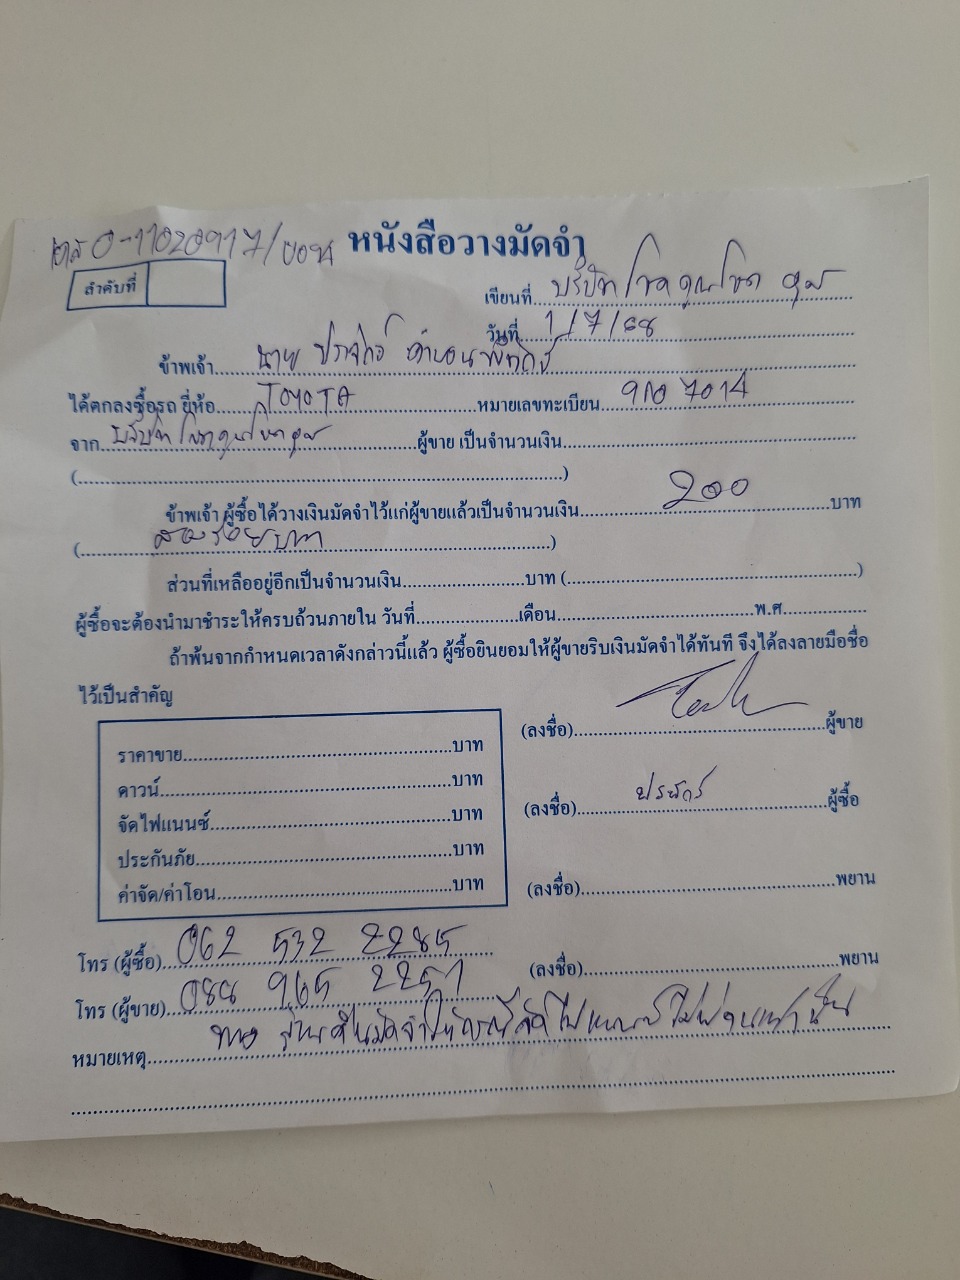 0-11020917/
หนังสือวางมัดจำ
ลำดับที่
เขียนที่ บริษัท โชคคูณโชค
วันที่ 1/7/68
ข้าพเจ้า นาย
ได้ตกลงซื้อรถ ยี่ห้อ TOYOTA หมายเลขทะเบียน 7014
จาก บริษัท โชคคูณโชค ผู้ขาย เป็นจำนวนเงิน
( )
ข้าพเจ้า ผู้ซื้อได้วางเงินมัดจำไว้แก่ผู้ขายแล้วเป็นจำนวนเงิน 200 บาท
( สองร้อยบาท )
ส่วนที่เหลืออยู่อีกเป็นจำนวนเงิน บาท ( )
ผู้ซื้อจะต้องนำมาชำระให้ครบถ้วนภายใน วันที่ เดือน พ.ศ.
ถ้าพ้นจากกำหนดเวลาดังกล่าวนี้แล้ว ผู้ซื้อยินยอมให้ผู้ขายริบเงินมัดจำได้ทันที จึงได้ลงลายมือชื่อ
ไว้เป็นสำคัญ
(ลงชื่อ) ผู้ขาย
ราคาขาย บาท
ดาวน์ บาท
(ลงชื่อ) ผู้ซื้อ
จัดไฟแนนซ์ บาท
ประกันภัย บาท
ค่าจัด/ค่าโอน บาท
(ลงชื่อ) พยาน
โทร (ผู้ซื้อ) 062 532 2285
(ลงชื่อ) พยาน
โทร (ผู้ขาย) 088 965 2251
หมายเหตุ ทาง ร้านคืนมัดจำในกรณีจัดไฟแนนซ์ไม่ผ่านเท่านั้น